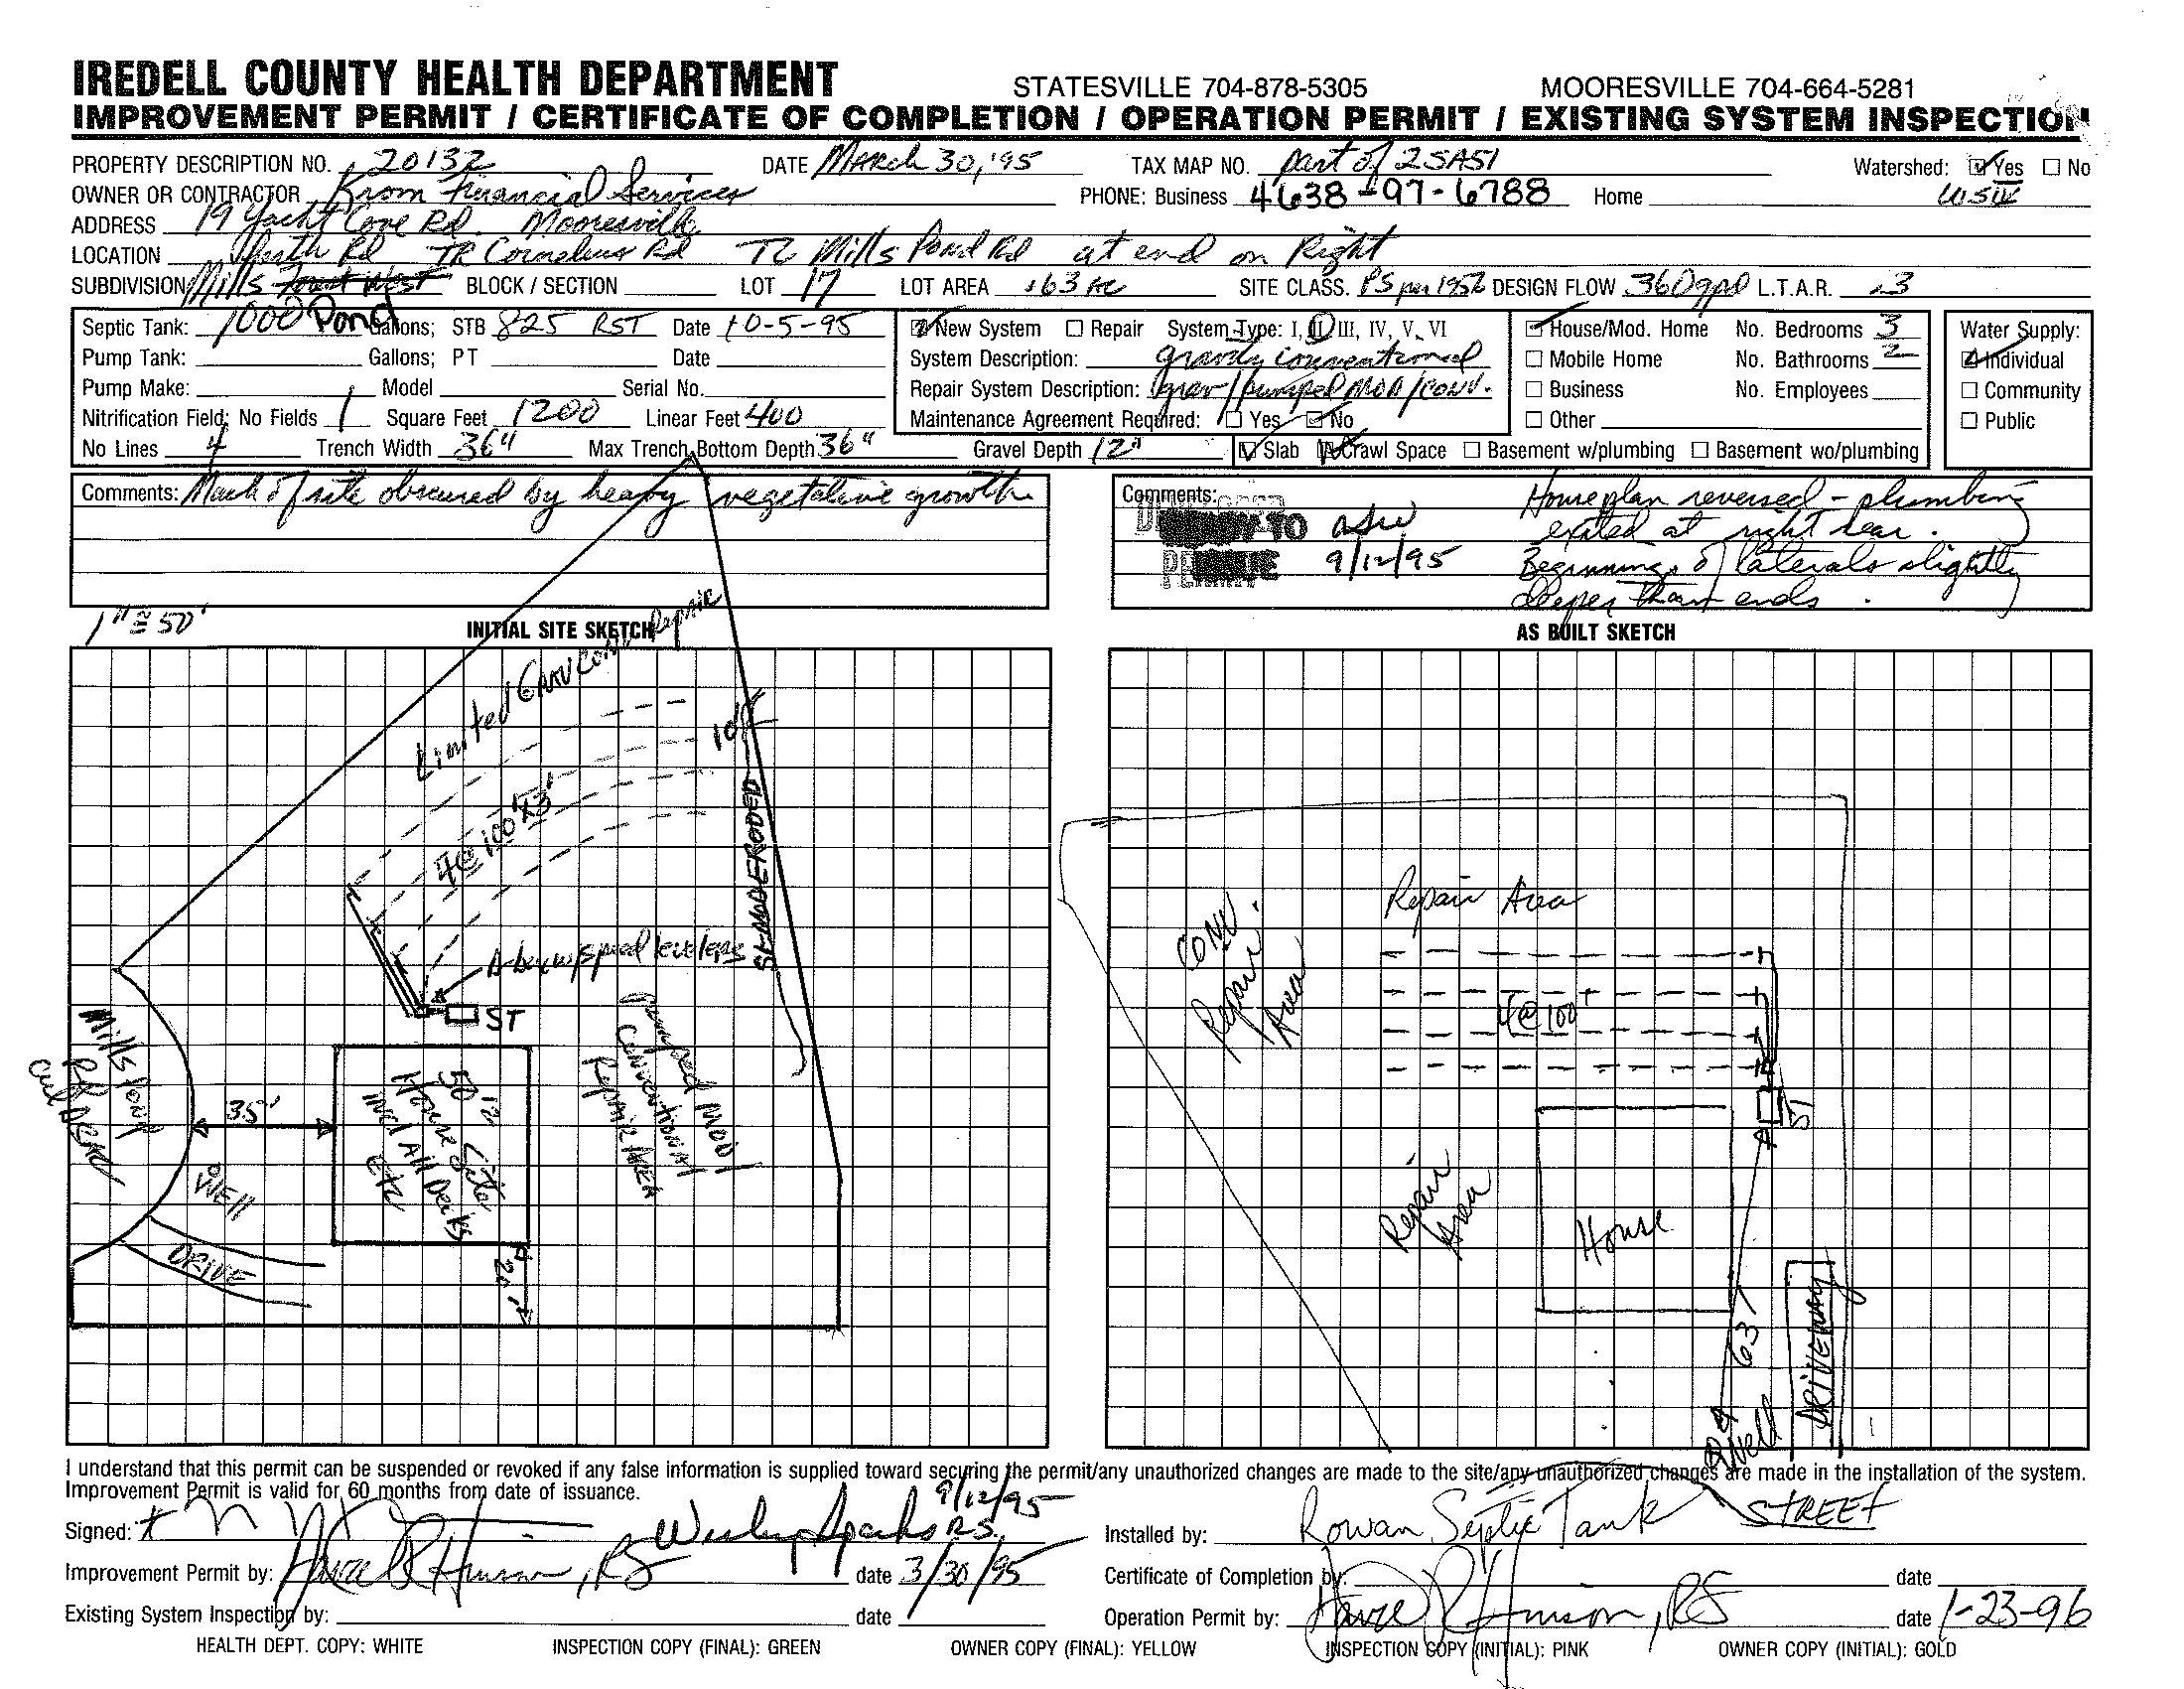 IREDELL COUNTY HEALTH DEPARTMENT STATESVILLE 704-878-5305 MOORESVILLE 704-664-5281
IMPROVEMENT PERMIT / CERTIFICATE OF COMPLETION / OPERATION PERMIT / EXISTING SYSTEM INSPECTION
PROPERTY DESCRIPTION NO. 20132 DATE March 30, '95 TAX MAP NO. part of 2SA51 Watershed: Yes No
OWNER OR CONTRACTOR Krom Financial Services PHONE: Business 4638-97-6788 Home WSIV
ADDRESS 19 Yacht Cove Rd. Mooresville
LOCATION Perth Rd TR Cornelius Rd TL Mills Pond Rd at end on Right
SUBDIVISION Mills Pond BLOCK / SECTION LOT 17 LOT AREA .63 ac SITE CLASS. PS per 1956 DESIGN FLOW 360gpd L.T.A.R. .3
Septic Tank: 1000 Gallons; STB 825 RST Date 10-5-95 New System Repair System Type: I, II, III, IV, V, VI House/Mod. Home No. Bedrooms 3 Water Supply:
Pump Tank: Gallons; PT Date System Description: gravity conventional Mobile Home No. Bathrooms 2 Individual
Pump Make: Model Serial No. Repair System Description: grav/pumped MOD/conv. Business No. Employees Community
Nitrification Field: No Fields 1 Square Feet 1200 Linear Feet 400 Maintenance Agreement Required: Yes No Other Public
No Lines 4 Trench Width 36" Max Trench Bottom Depth 36" Gravel Depth 12" Slab Crawl Space Basement w/plumbing Basement wo/plumbing
Comments: Much of site obscured by heavy vegetative growth
Comments: House plan reversed - plumbing
exited at right rear.
9/12/95 Beginnings of laterals slightly
deeper than ends.
1" ≅ 50'
INITIAL SITE SKETCH
Limited Conv Repair
10'
4@100'x3'
ERODED
D-box w/speed levelers
ST
Pumped MOD/
Conventional
Repair AREA
Mills Pond
Rd
35'
50'
House Site
Incl All Decks
Etc
WELL
DRIVE
20'
AS BUILT SKETCH
Repair Area
CONV.
Repair
Area
4@100'
ST
Repair
Area
House
63'
DRIVEWAY
Well
STREET
I understand that this permit can be suspended or revoked if any false information is supplied toward securing the permit/any unauthorized changes are made to the site/any unauthorized changes are made in the installation of the system.
Improvement Permit is valid for 60 months from date of issuance.
9/12/95
Signed: Wesley Sparks RS
Installed by: Rowan Septic Tank
Improvement Permit by: RS date 3/30/95
Certificate of Completion by: date
Existing System Inspection by: date
Operation Permit by: RS date 1-23-96
HEALTH DEPT. COPY: WHITE INSPECTION COPY (FINAL): GREEN OWNER COPY (FINAL): YELLOW INSPECTION COPY (INITIAL): PINK OWNER COPY (INITIAL): GOLD